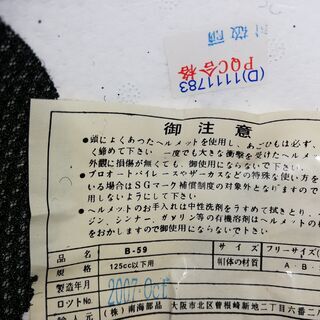 (D)1111783
PQC合格
御注意
●頭によくあったヘルメットを使用し、あごひもは必ず、
く締めて下さい 一度でも大きな衝撃を受けたヘルメ
外観に損傷が無くても、御使用にならないで下さい。
●プロオートバイレースやサーカスなどの特殊な使い方を
いる場合はSGマーク補償制度の対象外となりますので
用しないようにして下さい
●ヘルメットのお手入れは中性洗剤をうすめて拭きとり、
ジン、シンナー、ガソリン等の有機溶剤はヘルメットの
をおかしますので御使用にならないで下さい。
品名 B-59 サイズ フリーサイズ(
規格 125cc以下用 帽体の材質 A・B・
製造年月 2007.
ロットNo
輸入元 (株)南海部品 大阪市北区曽根崎新地二丁目六番二